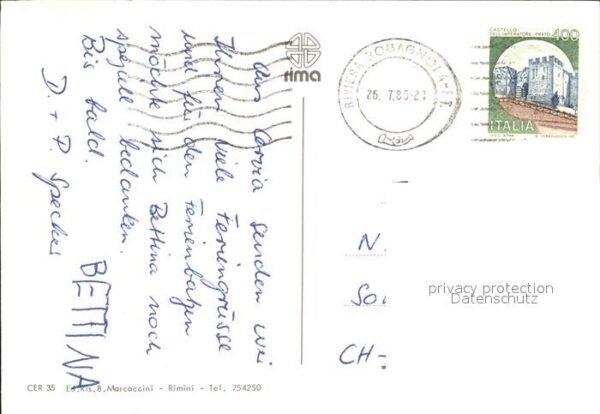 Aus Cervia senden wir
Ihnen viele Feriengrüsse
und für den Ferienbatzen
möchte sich Bettina noch
speziell bedanken.
Bis bald.
D. + P. Specker
BETTINA
rima
RIVIERA ROMAGNOLA
26. 7.85-21
CASTELLO
DELL'IMPERATORE · PRATO
400
ITALIA
N
So
CH-
privacy protection
Datenschutz
CER 35 Ed. Ris. B. Marcaccini - Rimini - Tel. 754250